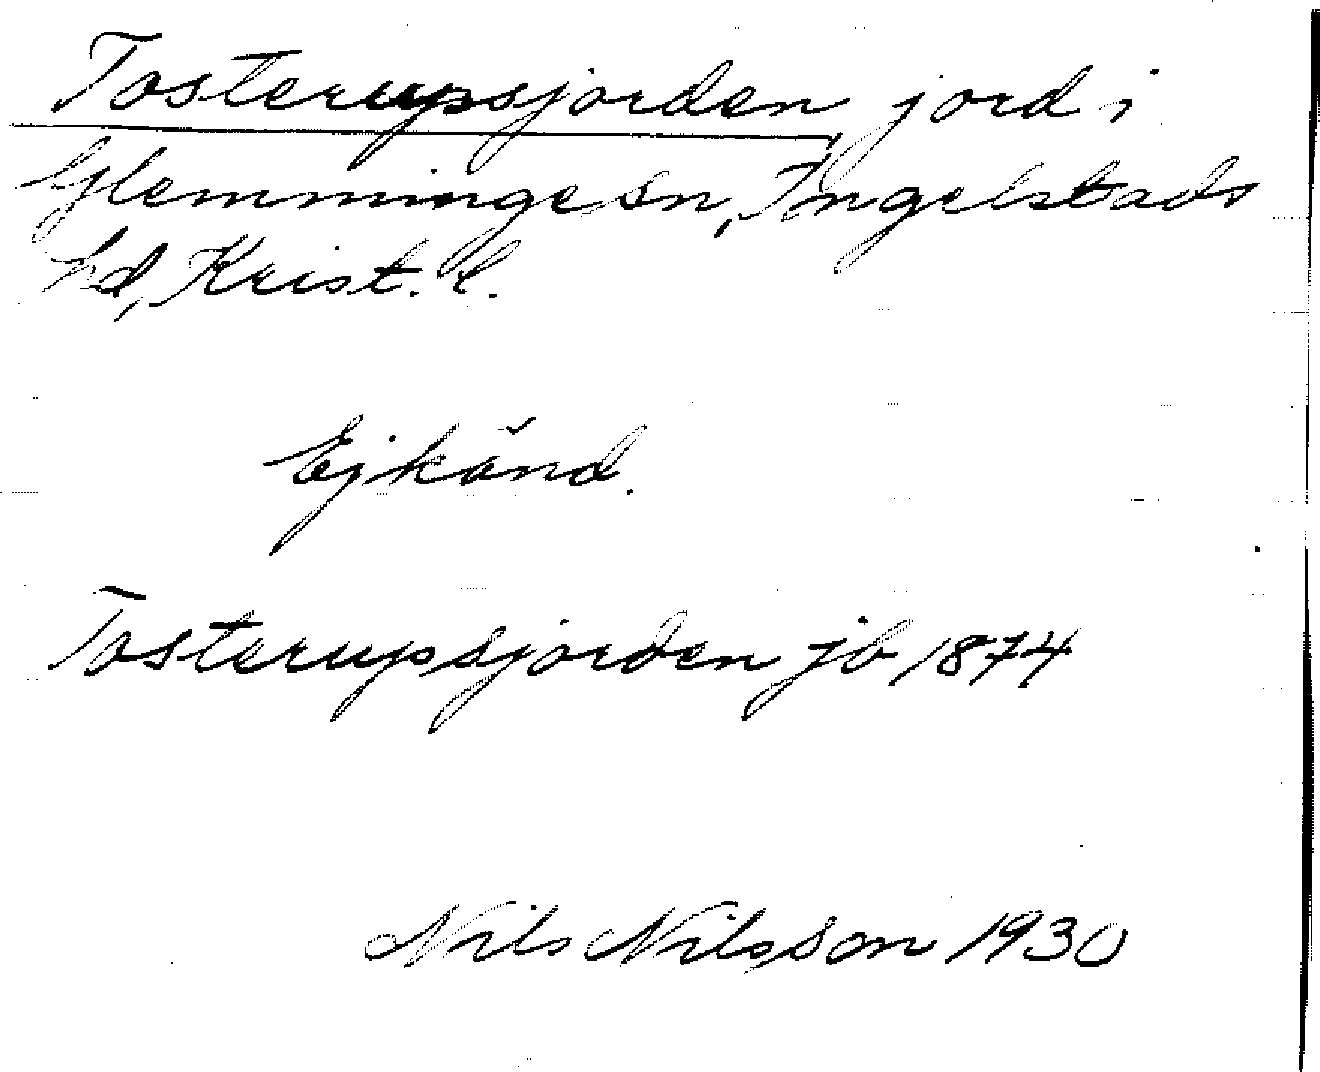 Tosterupsjorden jord i
Glemminge sn, Ingelstads
hd, Krist. l.
Ej känd.
Tosterupsjorden jb 1874
Nils Nilsson 1930